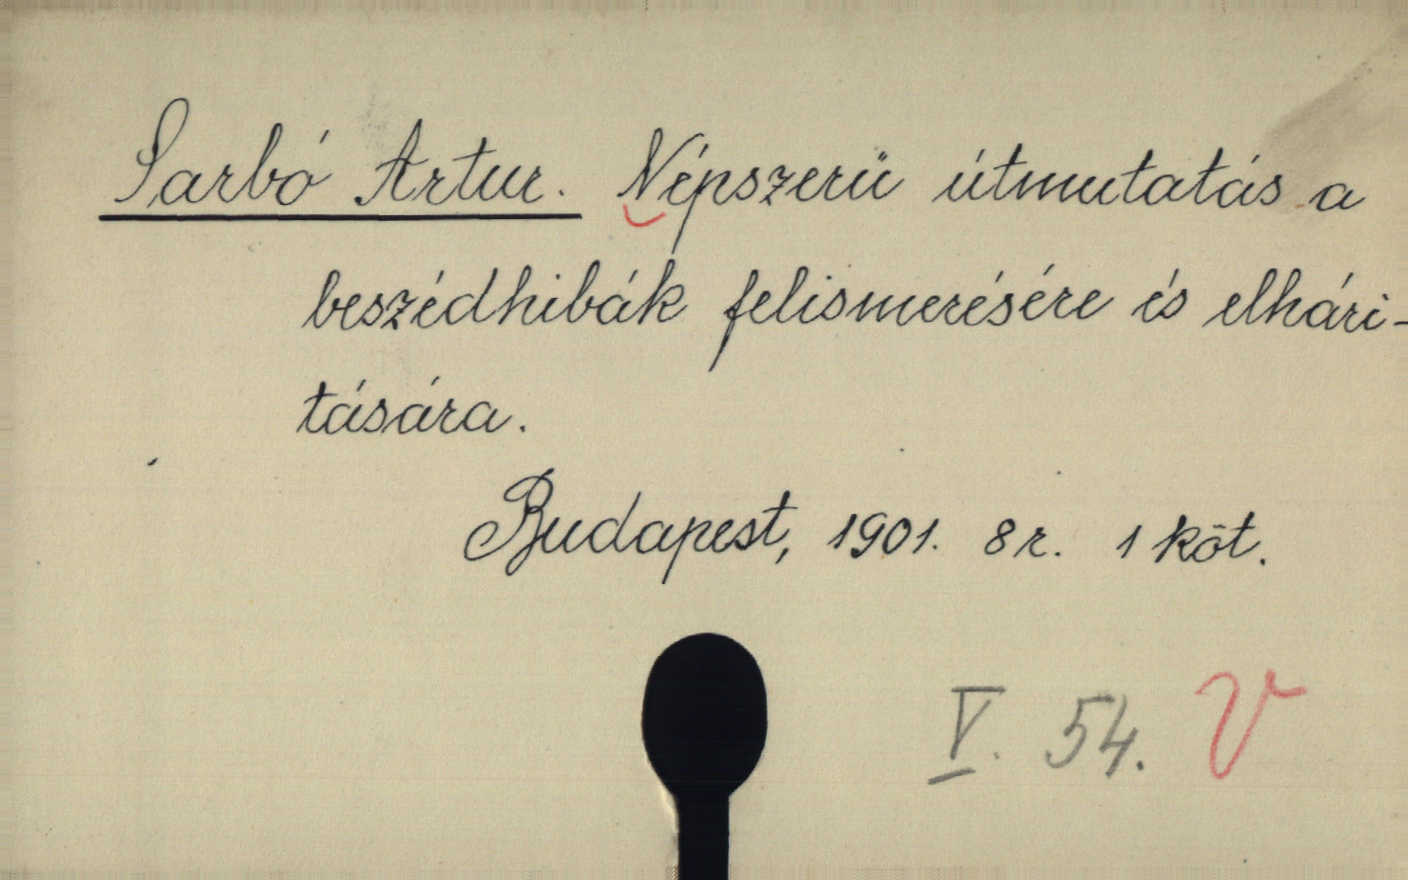 Sarbó Artur. Népszerü útmutatás a
beszédhibák felismerésére és elhári-
tására.
Budapest, 1901. 8r. 1 köt.
V. 54. V